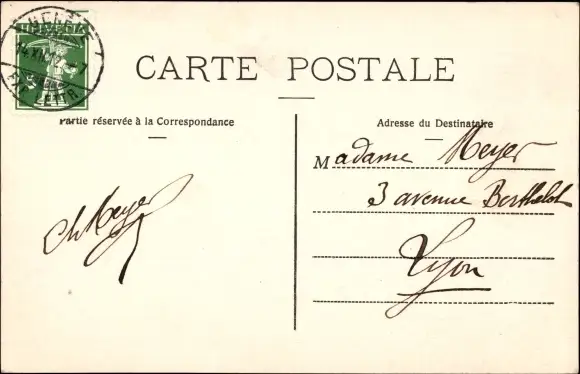 HELVETIA
CARTE POSTALE
Partie réservée à la Correspondance
Adresse du Destinataire
Madame Meyer
3 avenue Berthelot
Lyon
Ch Meyer